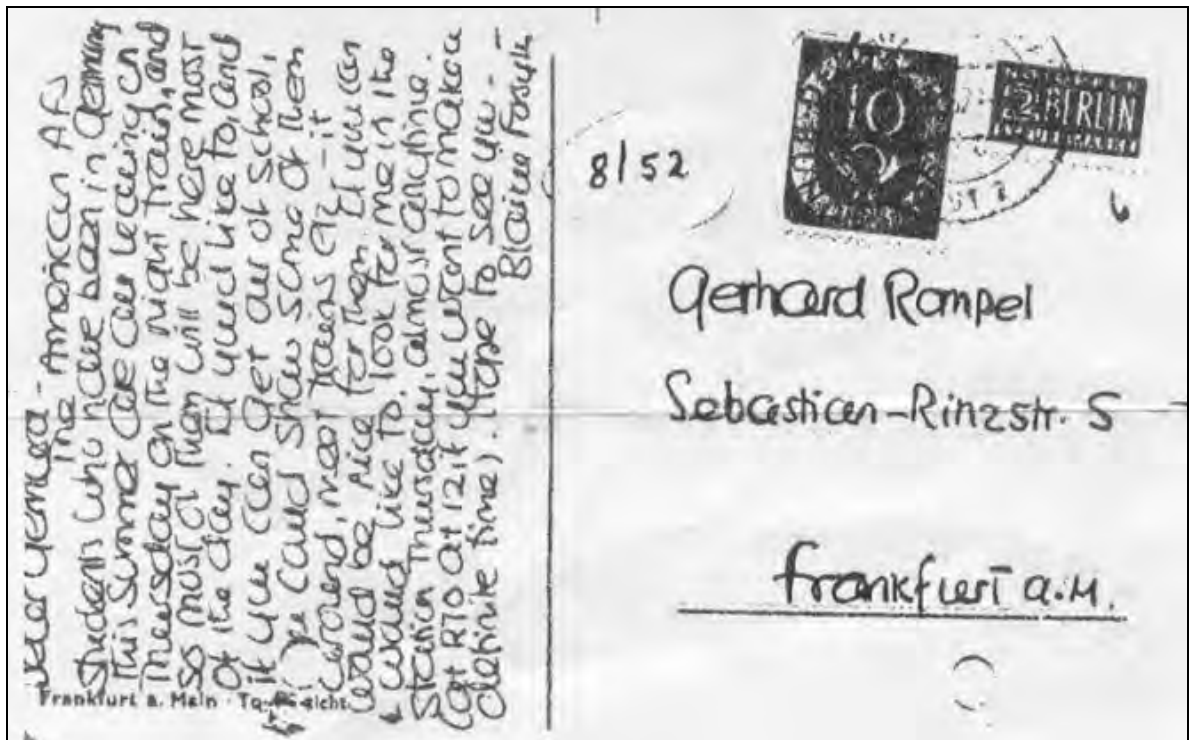 Dear Gerhard -
The American AFS
students who have been in Germany
this summer are all leaving on
Thursday on the night train, and
so most of them will be here most
of the day. If you'd like to, and
if you can get out of school,
we could show some of them
around, meet trains etc - it
would be nice for them if you can
& would like to. Look for me in the
station Thursday, almost anytime.
(at RTO at 12 if you want to make a
definite time). Hope to see you -
Blaine
Frankfurt a. Main
8/52
10
NOTOPFER
2 BERLIN
STEUERMARKE
Gerhard Rempel
Sebastian-Rinzstr. 5
Frankfurt a.M.